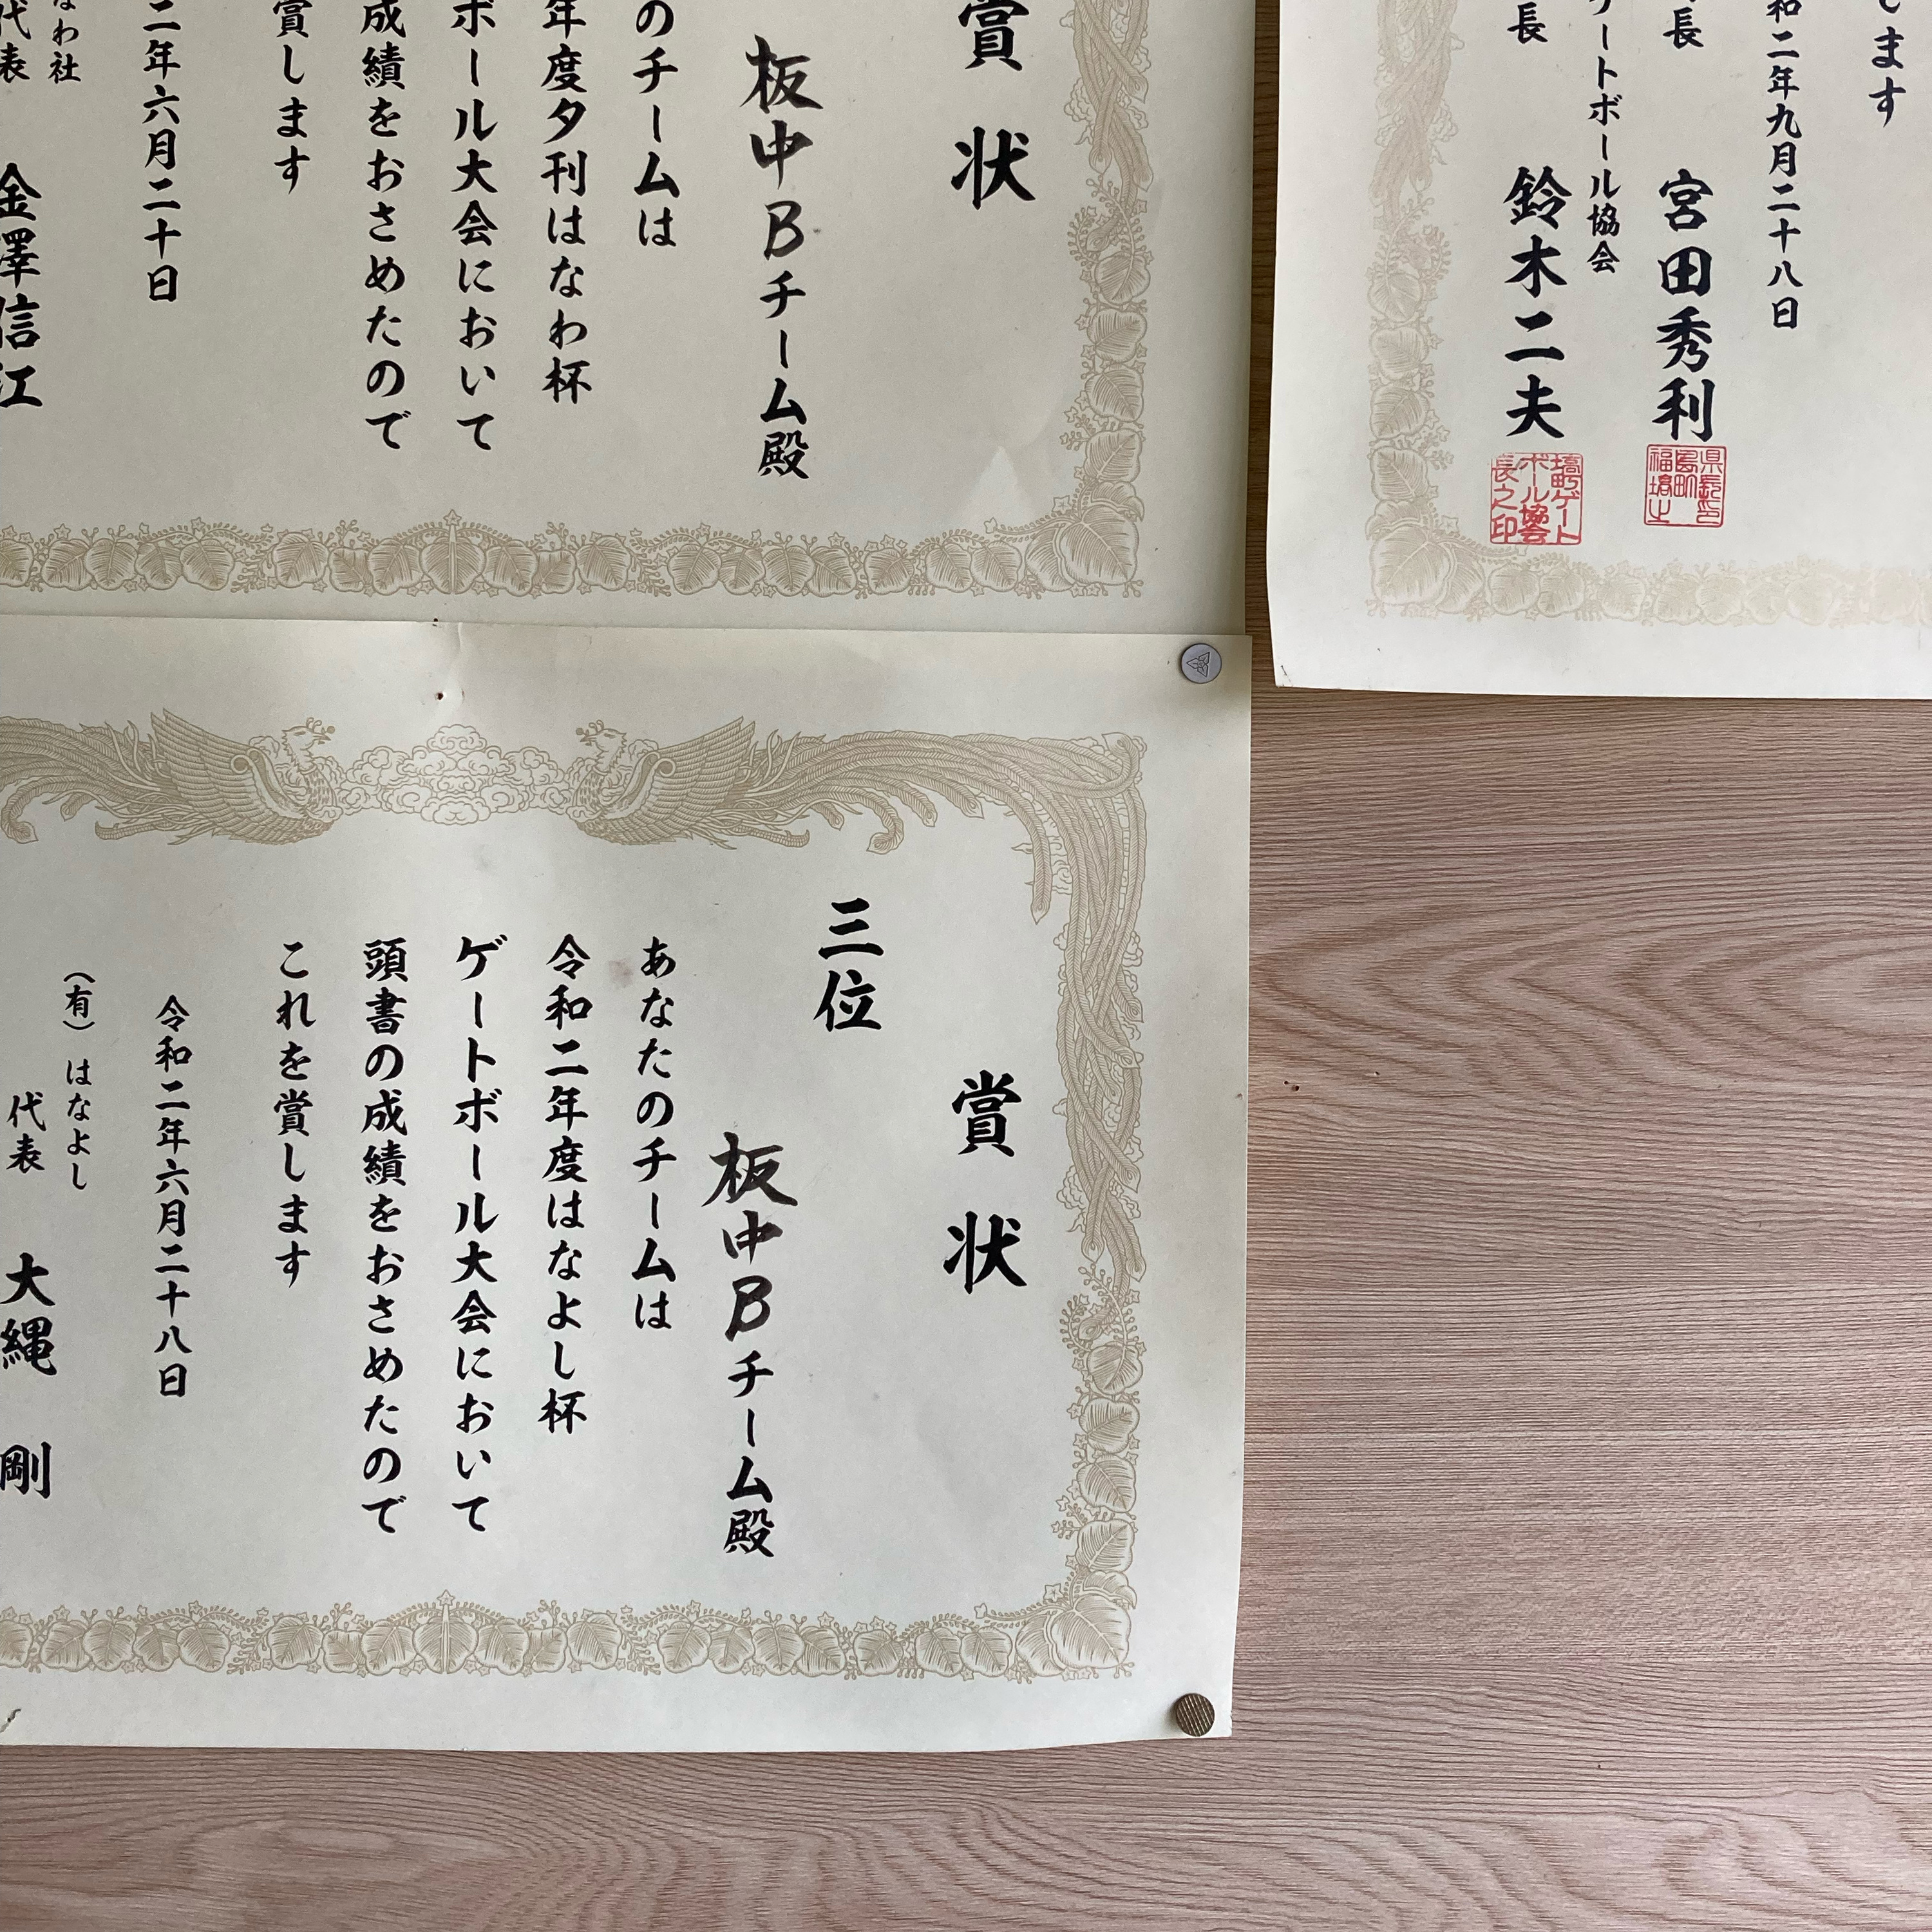 賞状
板中Bチーム殿
のチームは
年度夕刊はなわ杯
ボール大会において
成績をおさめたので
賞します
二年六月二十日
なわ社
代表 金澤信江
します
和二年九月二十八日
長 宮田秀利
ゲートボール協会
長 鈴木二夫
塙町ゲートボール協会長之印
賞状
三位
板中Bチーム殿
あなたのチームは
令和二年度はなよし杯
ゲートボール大会において
頭書の成績をおさめたので
これを賞します
令和二年六月二十八日
(有)はなよし
代表 大縄 剛